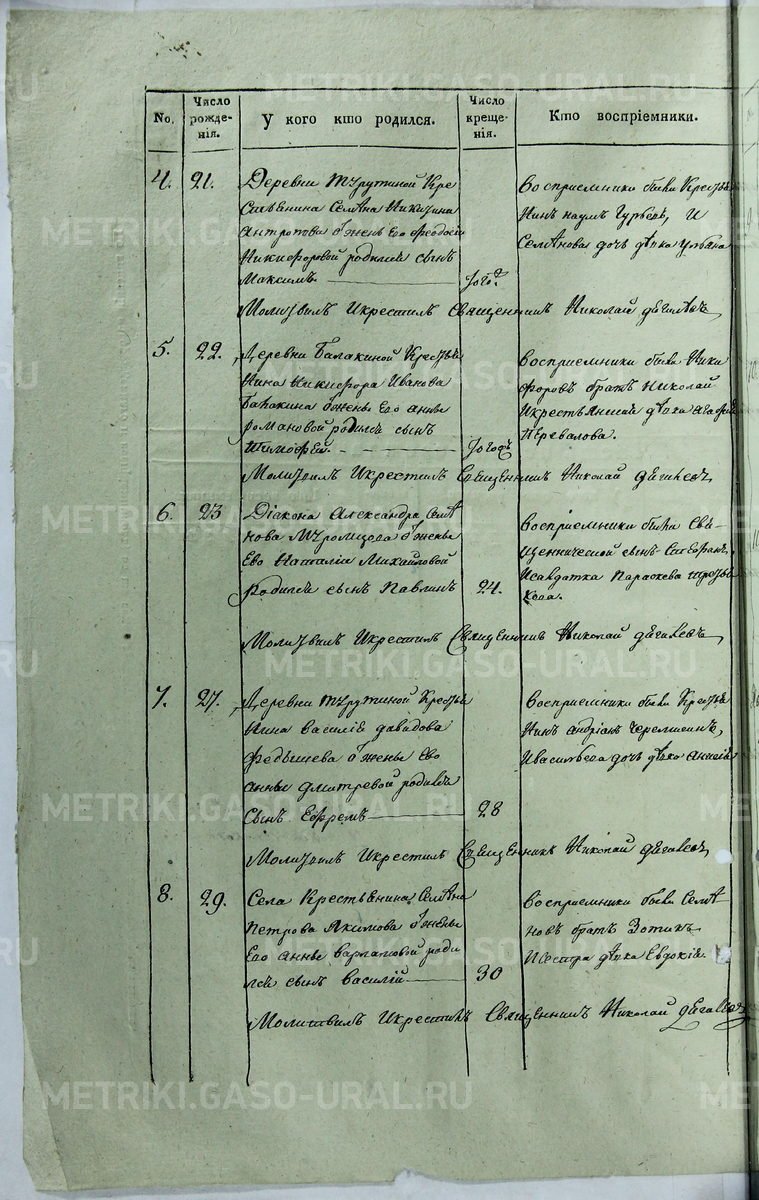 No.
Число рожденія.
У кого кто родился.
Число крещенія.
Кто воспріемники.
4.
21.
Деревни Трутиной Кре
стьянина Семена Никитина
Антропова у жены Его Феодосіи
Никифоровой родился сынъ
Максимъ.
того
Воспріемники были Кресть
нинъ Наумъ Гурьевъ, и
Семенова дочь девка Ульяна
Молитвилъ и крестилъ Священникъ Николай
5.
22.
Деревни Балакиной Кресть
нина Никифора Иванова
Балакина у жены Его Анны
Романовой родился сынъ
Тимофей.
Воспріемники были Ники
форовъ братъ Николай
и крестьянская девка Агафья
Перевалова.
Молитвилъ и крестилъ Священникъ Николай
6.
23
Діакона Александра Семе
нова у жены
Ево Наталіи Михайловой
родился сынъ Павлинъ
24.
Воспріемники были Свя
щенническій сынъ Стефанъ,
и солдатка Параскева
Молитвилъ и крестилъ Священникъ Николай
7.
27.
Деревни Трутиной Кресть
нина Василія Давидова
Федышева у жены Ево
Анны Дмитревой родился
сынъ Ефремъ
28
Воспріемники были Кресть
нинъ Андріанъ Черемисинъ,
и Васильева дочь девка Анисія
Молитвилъ и крестилъ Священникъ Николай
8.
29.
Села Крестьянина Семена
Петрова Якимова у жены
Его Анны Варламовой роди
лся сынъ Василій
30
Воспріемники были Семе
новъ братъ Зотикъ
и сестра девка Евдокія.
Молитвилъ и крестилъ Священникъ Николай
METRIKI.GASO-URAL.RU